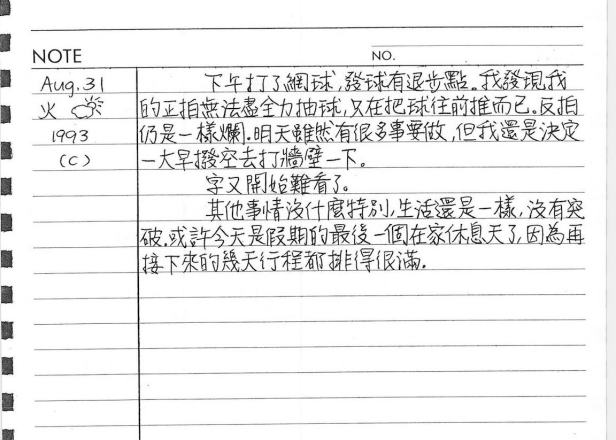 NOTE
NO.
Aug. 31
火
1993
(C)
下午打了網球,發球有退步點。我發現我
的正拍無法盡全力抽球,只在把球往前推而已.反拍
仍是一樣爛.明天雖然有很多事要做,但我還是決定
一大早撥空去打牆壁一下。
字又開始難看了。
其他事情沒什麼特別,生活還是一樣,沒有突
破.或許今天是假期的最後一個在家休息天了,因為再
接下來的幾天行程都排得很滿.